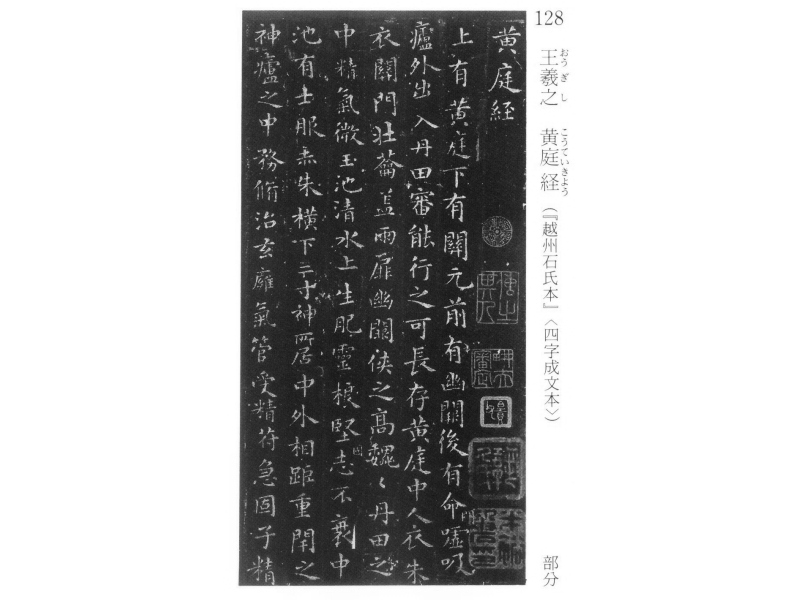 128
王羲之 黄庭経(『越州石氏本』〈四字成文本〉) 部分
おうぎし こうていきよう
黄庭經
上有黄庭下有關元前有幽闕後有命噓吸
廬外出入丹田審能行之可長存黄庭中人衣朱
衣關門壯籥蓋兩扉幽闕俠之高巍〻丹田之
中精氣微玉池清水上生肥靈根堅志不衰中
池有士服赤朱横下三寸神所居中外相距重閉之
神廬之中務脩治玄廱氣管受精符急固子精